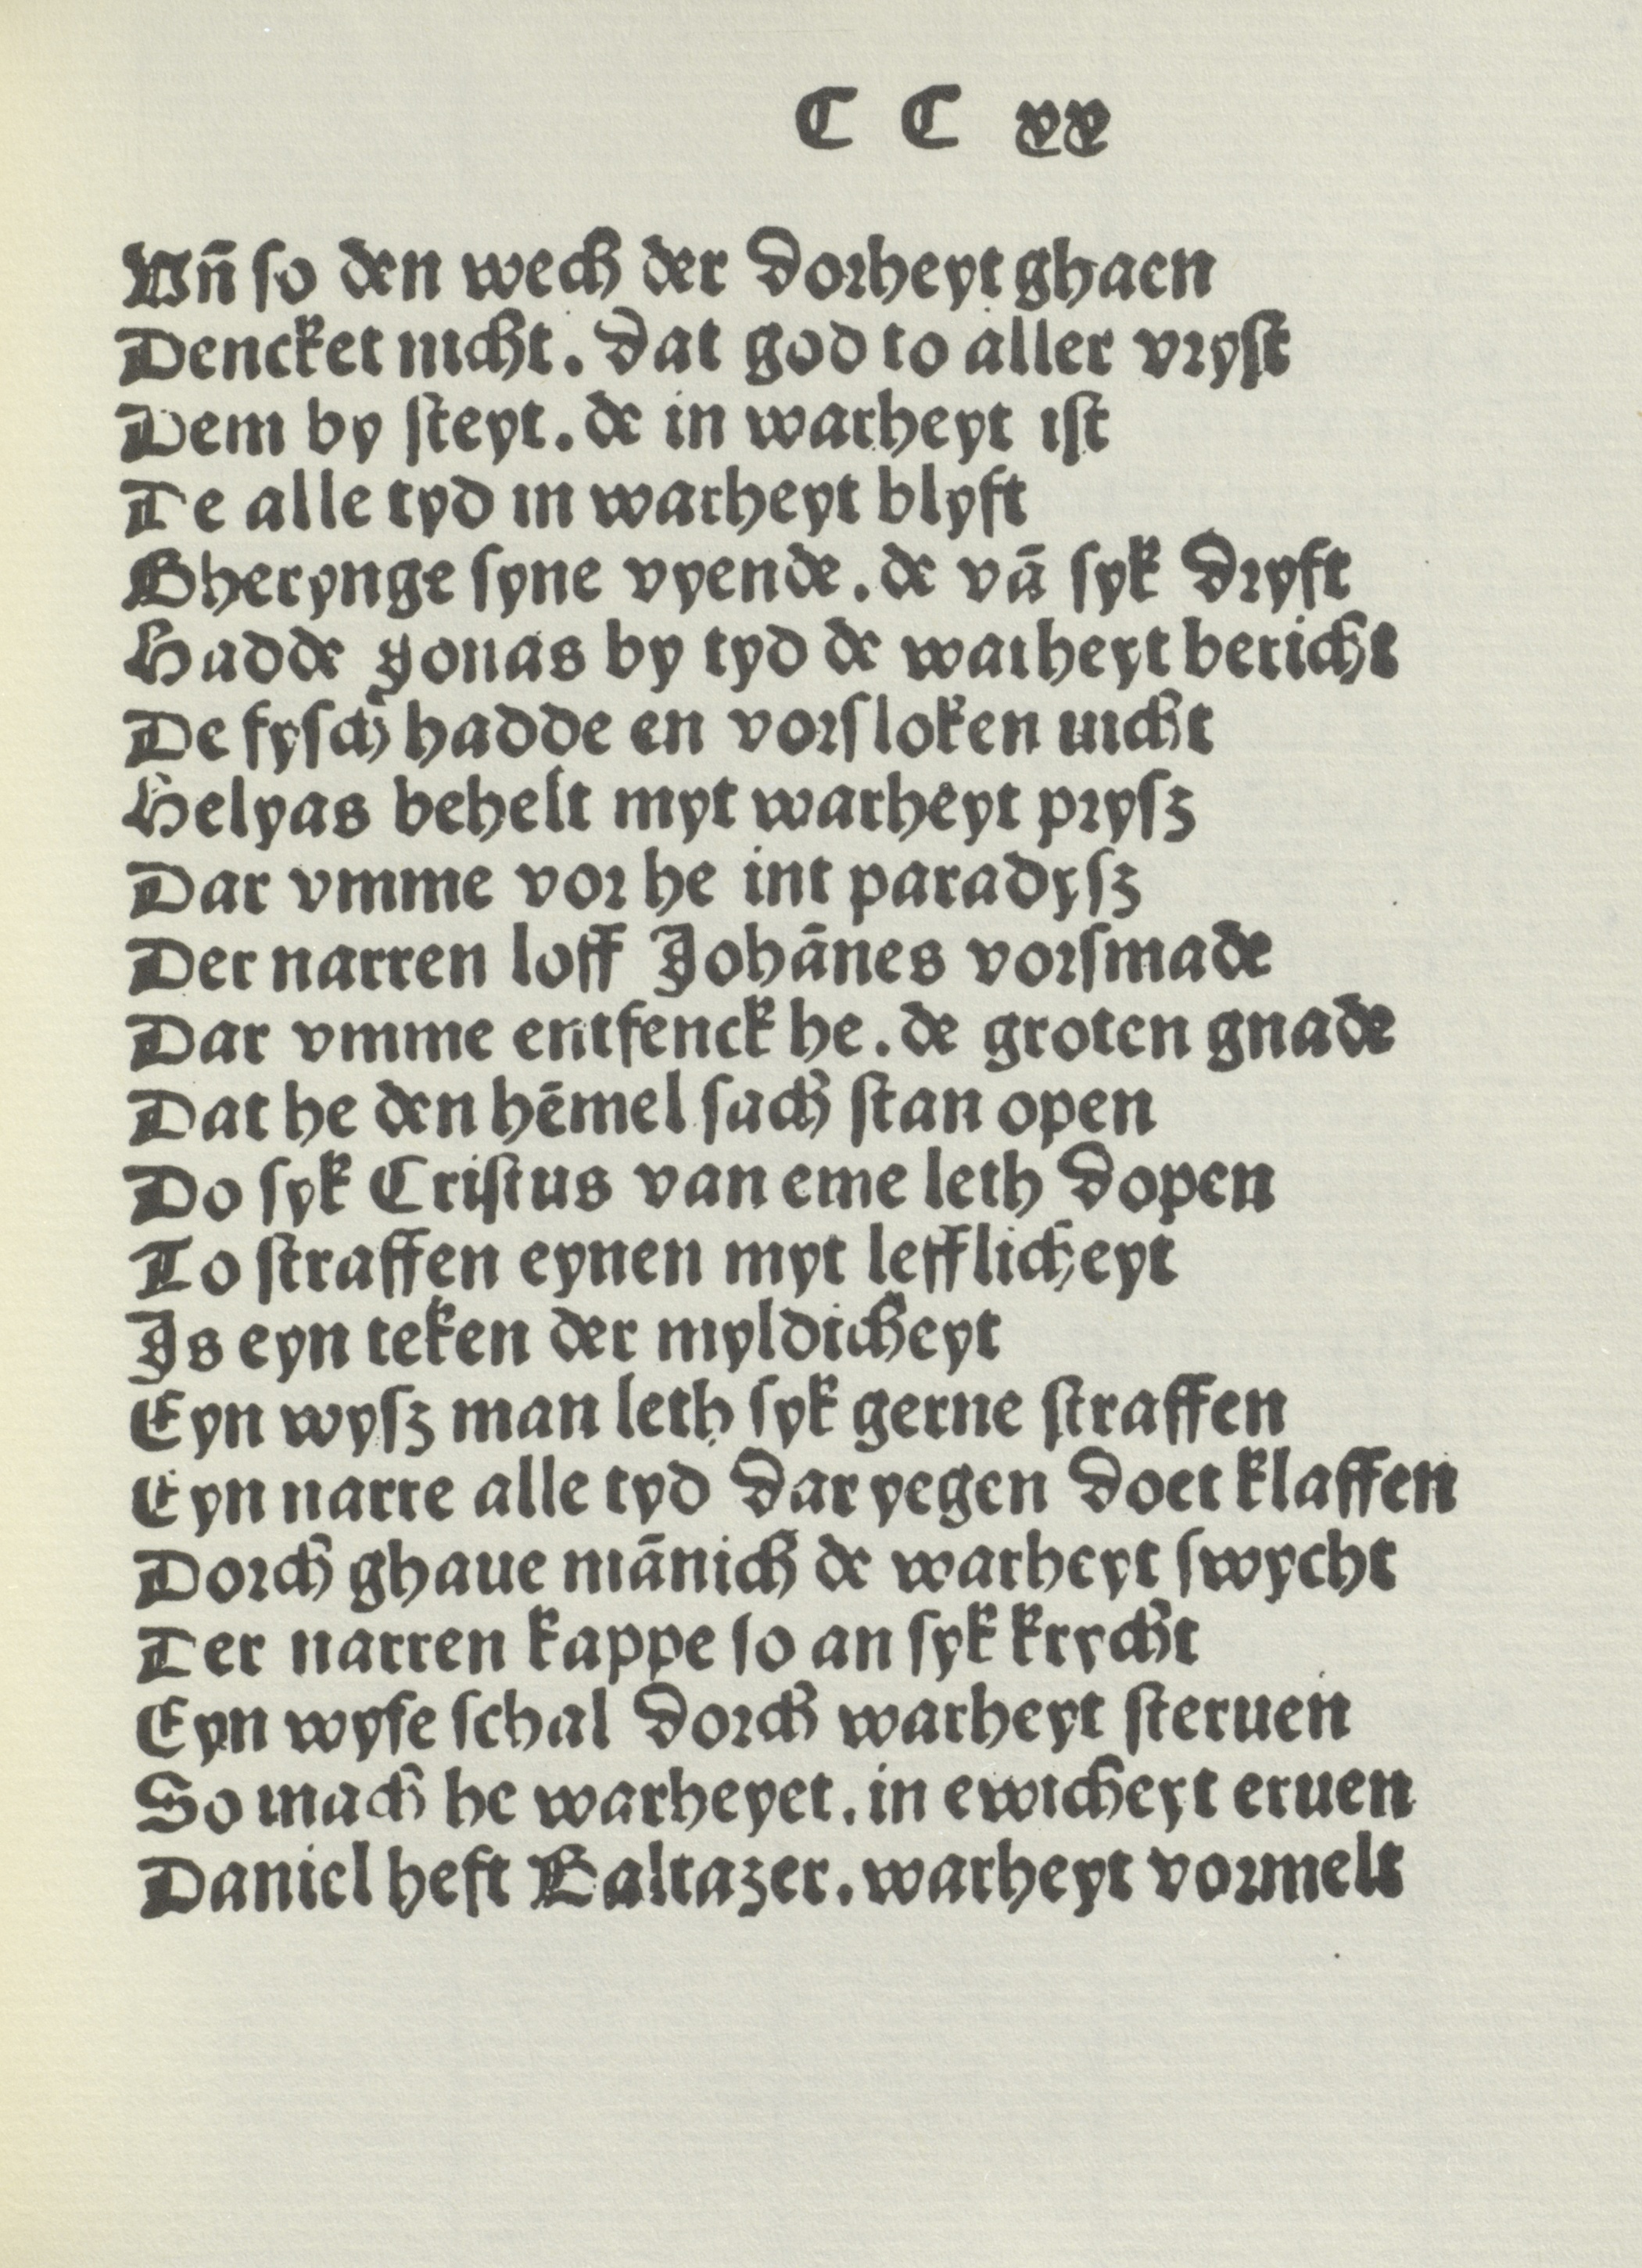 C C xx
Vn̄ ſo den wech der dorheyt ghaen
Dencket nicht. dat god to aller vryſt
Dem by ſteyt. de in warheyt iſt
De alle tyd in warheyt blyft
Gherynge ſyne vyende. de vā ſyk dryft
Hadde Jonas by tyd de warheyt bericht
De fyſch hadde en vorſloken nicht
Helyas behelt myt warheyt pryſz
Dar vmme vor he int paradyſz
Der narren loff Johānes vorſmade
Dar vmme entfenck he. de groten gnade
Dat he den hēmel ſach ſtan open
Do ſyk Criſtus van eme leth dopen
To ſtraffen eynen myt lefflicheyt
Js eyn teken der myldicheyt
Eyn wyſz man leth ſyk gerne ſtraffen
Eyn narre alle tyd dar yegen doet klaffen
Dorch ghaue mānich de warheyt ſwycht
Der narren kappe ſo an ſyk krycht
Eyn wyſe ſchal dorch warheyt ſteruen
So mach he warheyet. in ewicheyt eruen
Daniel heft Baltazer. warheyt vormelt